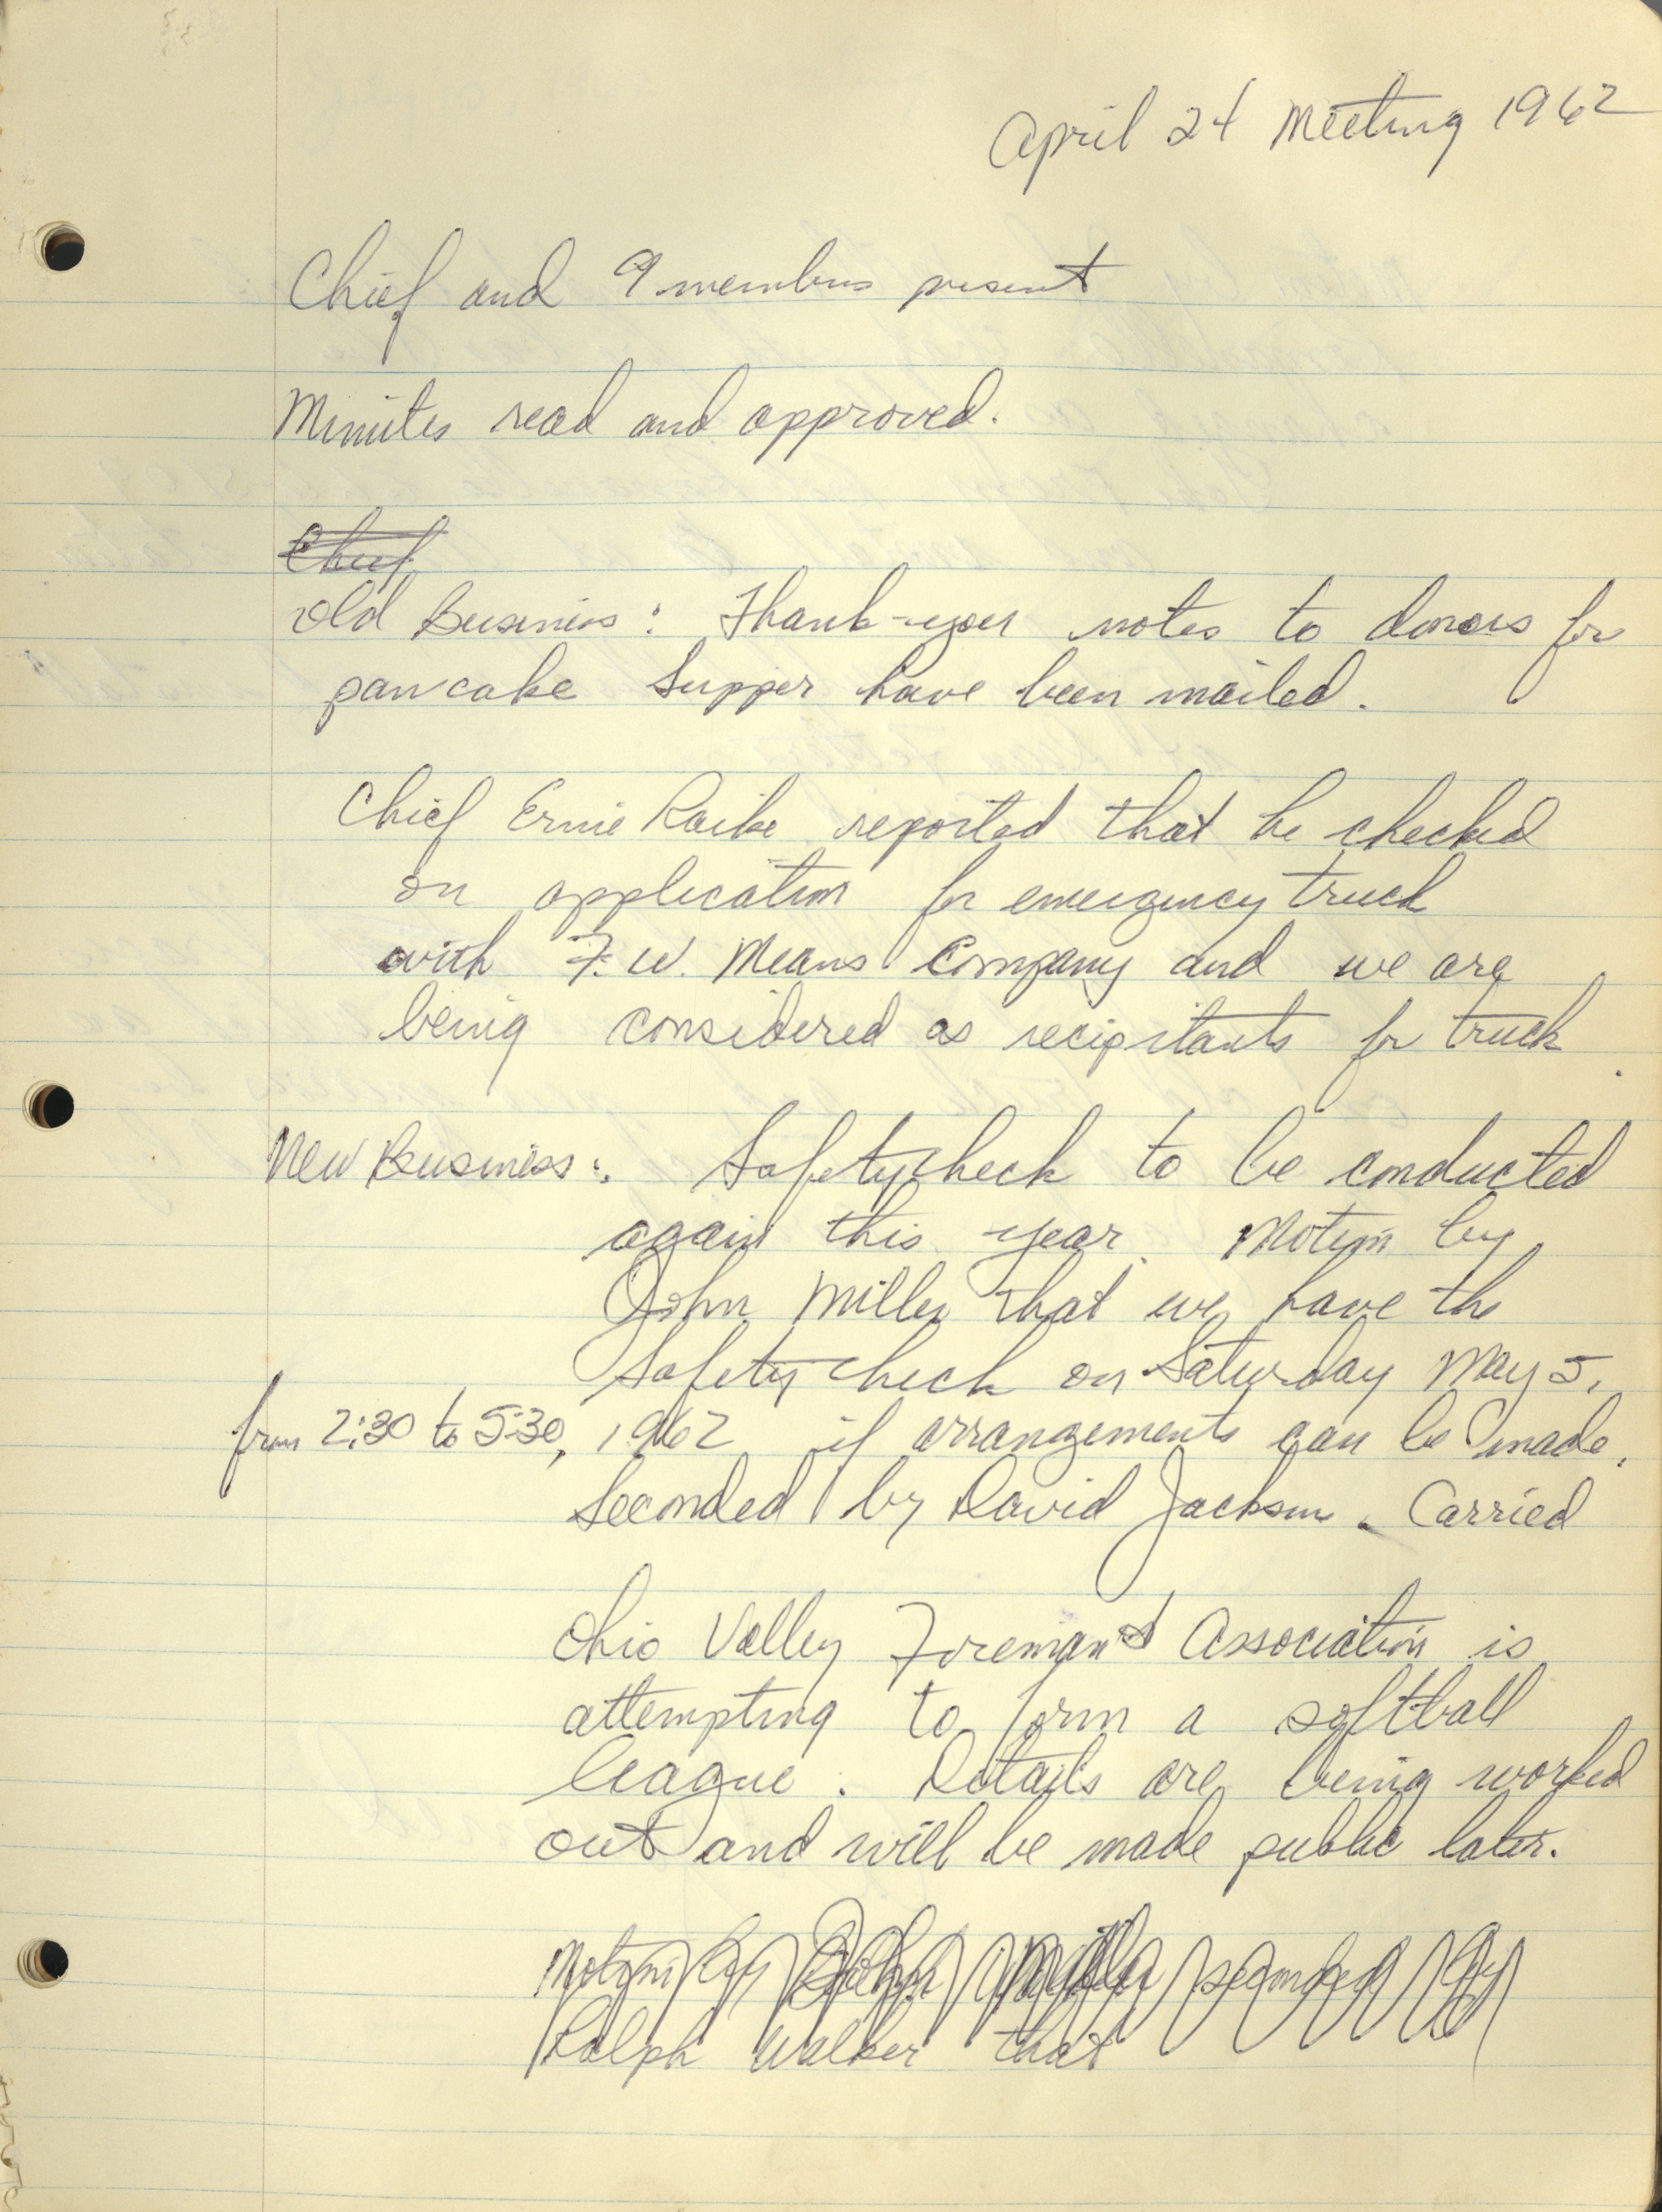 April 24 Meeting 1962
Chief and 9 members present
Minutes read and approved.
Chief
Old Business: Thank-you notes to donors for
pancake Supper have been mailed.
Chief Ernie Raike reported that he checked
on application for emergency truck
with F. W. Means Company and we are
being considered as recipitants for truck.
New Business: Safety check to be conducted
again this year. Motion by
John Miller that we have the
Safety check on Saturday May 5,
from 2:30 to 5:30, 1962 if arrangements can be made.
Seconded by David Jackson. Carried
Ohio Valley Foreman's Association is
attempting to form a softball
league. Details are being worked
out and will be made public later.
Motion by John Miller seconded by
Ralph Walker that